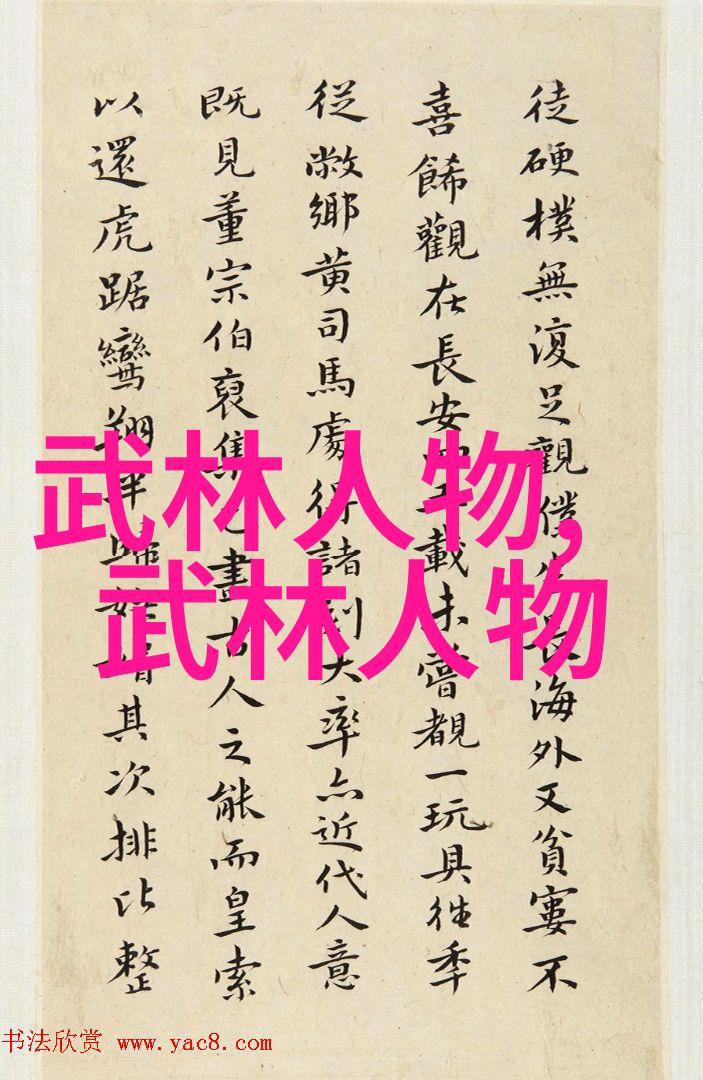 徒硬樸無復足觀僕生長海外又貧窶不
喜餙觀在長安四年載未嘗覩一玩具往季
從敝鄉黄司馬處得諸刻大率亦近代人意
既見董宗伯裒集畫古人之能而皇索
以還虎踞鸞翔其次排比整
武林人物,
武林人物
书法欣赏 www.yac8.com